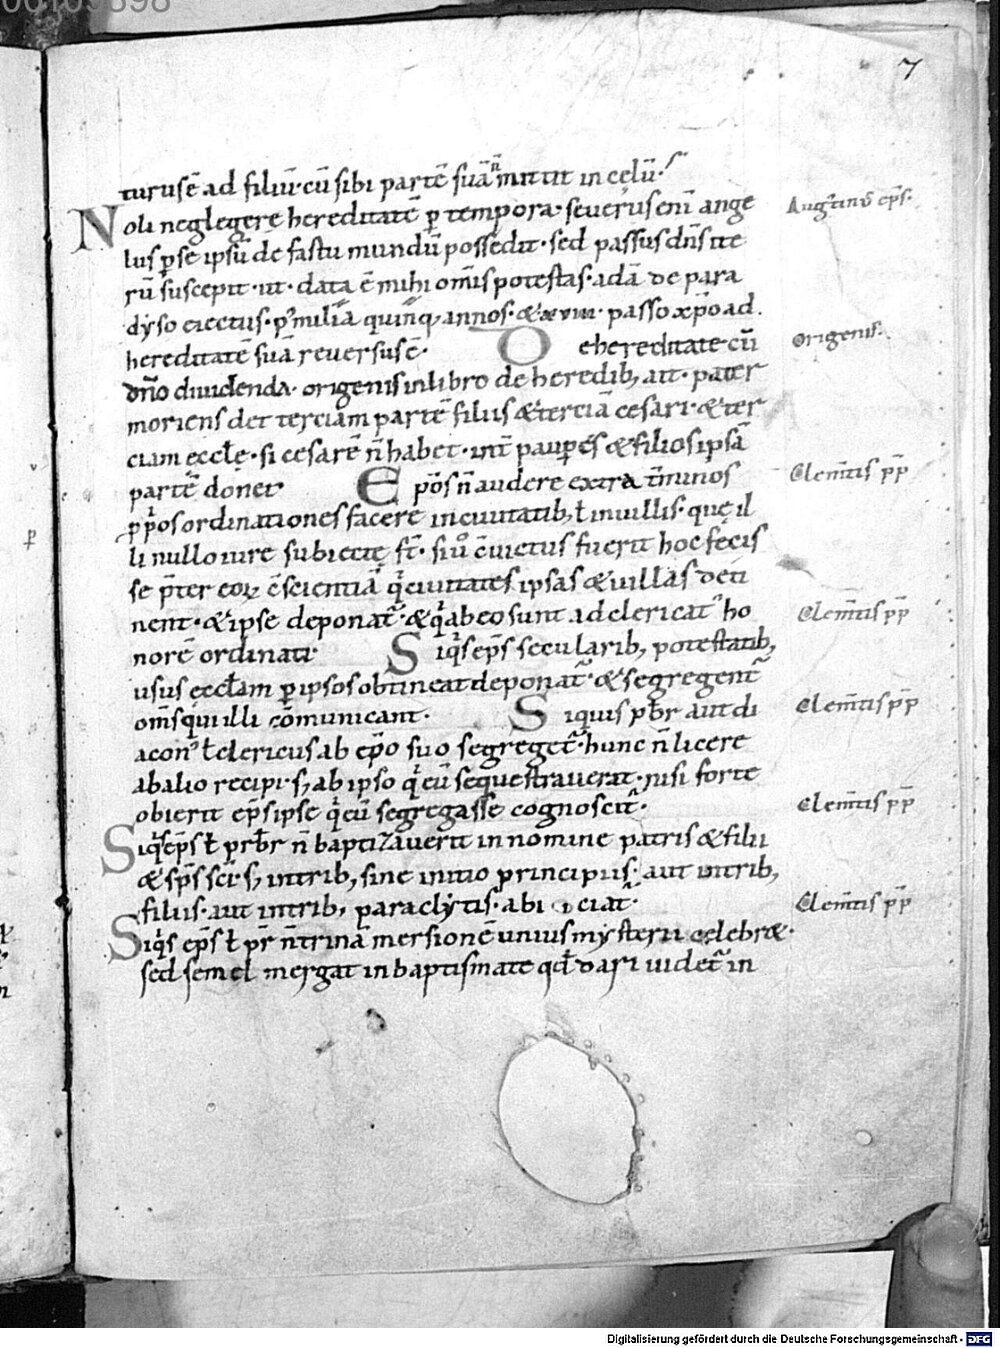 7
turus ē ad filiū· cū sibi partē suā n̄ mittit in celū·
Noli neglegere hereditatē p̱ tempora· severus enī ange
lus p̱ se ipsū de fastu mundū possedit· sed passus dn̄s ite
rū suscepit· ut· data ē mihi om̄is potestas· adā de para
dyso eiectus· p̄ milia quinq; annos· & xxviii· passo xp̄o ad
hereditatē suā reversus ē· De hereditate cū
dn̄o dividenda· origenis in libro de heredib; ait· pater
moriens det terciam partē filiis & terciā cesari· & ter
ciam eccłe· si cesarē n̄ habet· int̄ paup̱es & filios ipsā
partē donet Ep̄os n̄ audere extra t̄minos
p̱p̄os ordinationes facere in civitatib; ł in villis· quę il
li nullo iure subiectę st̄· si v̊ c̄victus fuerit hoc fecis
se p̄ter eoꝝ c̄scientiā qͥ civitates ipsas & villas deti
nent· & ipse deponat᷑· & qͥ ab eo sunt ad clericat᷒ ho
norē ordinati Siqͥs ep̄s secularib; potestatib;
usus eccłam p̱ ipsos obtineat deponat᷑· & segregent᷑
om̄s qui illi cōmunicant· Siquis pb̄r aut di
acon᷒ ł clericus ab ep̄o suo segreget᷑· hunc n̄ licere
ab alio recipi· s; ab ipso qͥ eū sequestraverat· nisi forte
obierit ep̄s ipse qͥ eū segregasse cognoscit᷑·
Siqͥs ep̄s ł prb̄r n̄ baptizaverit in nomine patris & filii
& sp̄s sc̄i· s; in trib; sine initio principiis· aut in trib;
filiis· aut in trib; paraclytis· abiciat᷑·
Siqͥs ep̄s ł pr̄ n̄ trinā mersionē unius mysterii celebr&·
sed semel mergat in baptismate qđ dari videt᷑ in
Augꝰtinꝰ ep̄s·
Origenis·
Clem̄tis pp̄
Clem̄tis pp̄
Clem̄tis pp̄
Clem̄tis pp̄
Clem̄tis pp̄
Digitalisierung gefördert durch die Deutsche Forschungsgemeinschaft - DFG